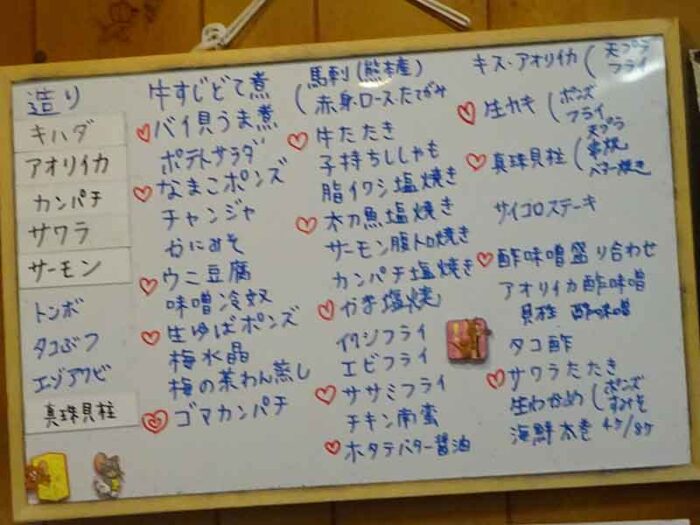 造り
キハダ
アオリイカ
カンパチ
サワラ
サーモン
トンボ
タコぶつ
エゾアワビ
真珠貝柱
牛すじどて煮
バイ貝うま煮
ポテトサラダ
なまこポンズ
チャンジャ
かにみそ
ウニ豆腐
味噌冷奴
生ゆばポンズ
梅水晶
梅の茶わん蒸し
ゴマカンパチ
馬刺(熊本産)
(赤身・ロース・たてがみ
牛たたき
子持ちししゃも
脂イワシ塩焼き
太刀魚塩焼き
サーモン腹トロ焼き
カンパチ塩焼き
かま塩焼
イワシフライ
エビフライ
ササミフライ
チキン南蛮
ホタテバター醤油
キス・アオリイカ(天プラ
フライ
生カキ(ポンズ
フライ
天プラ
真珠貝柱(串焼
バター焼き
サイコロステーキ
酢味噌盛り合わせ
アオリイカ酢味噌
貝柱 酢味噌
タコ酢
サワラたたき
生わかめ(ポンズ
すみそ
海鮮太巻 4ケ/8ケ